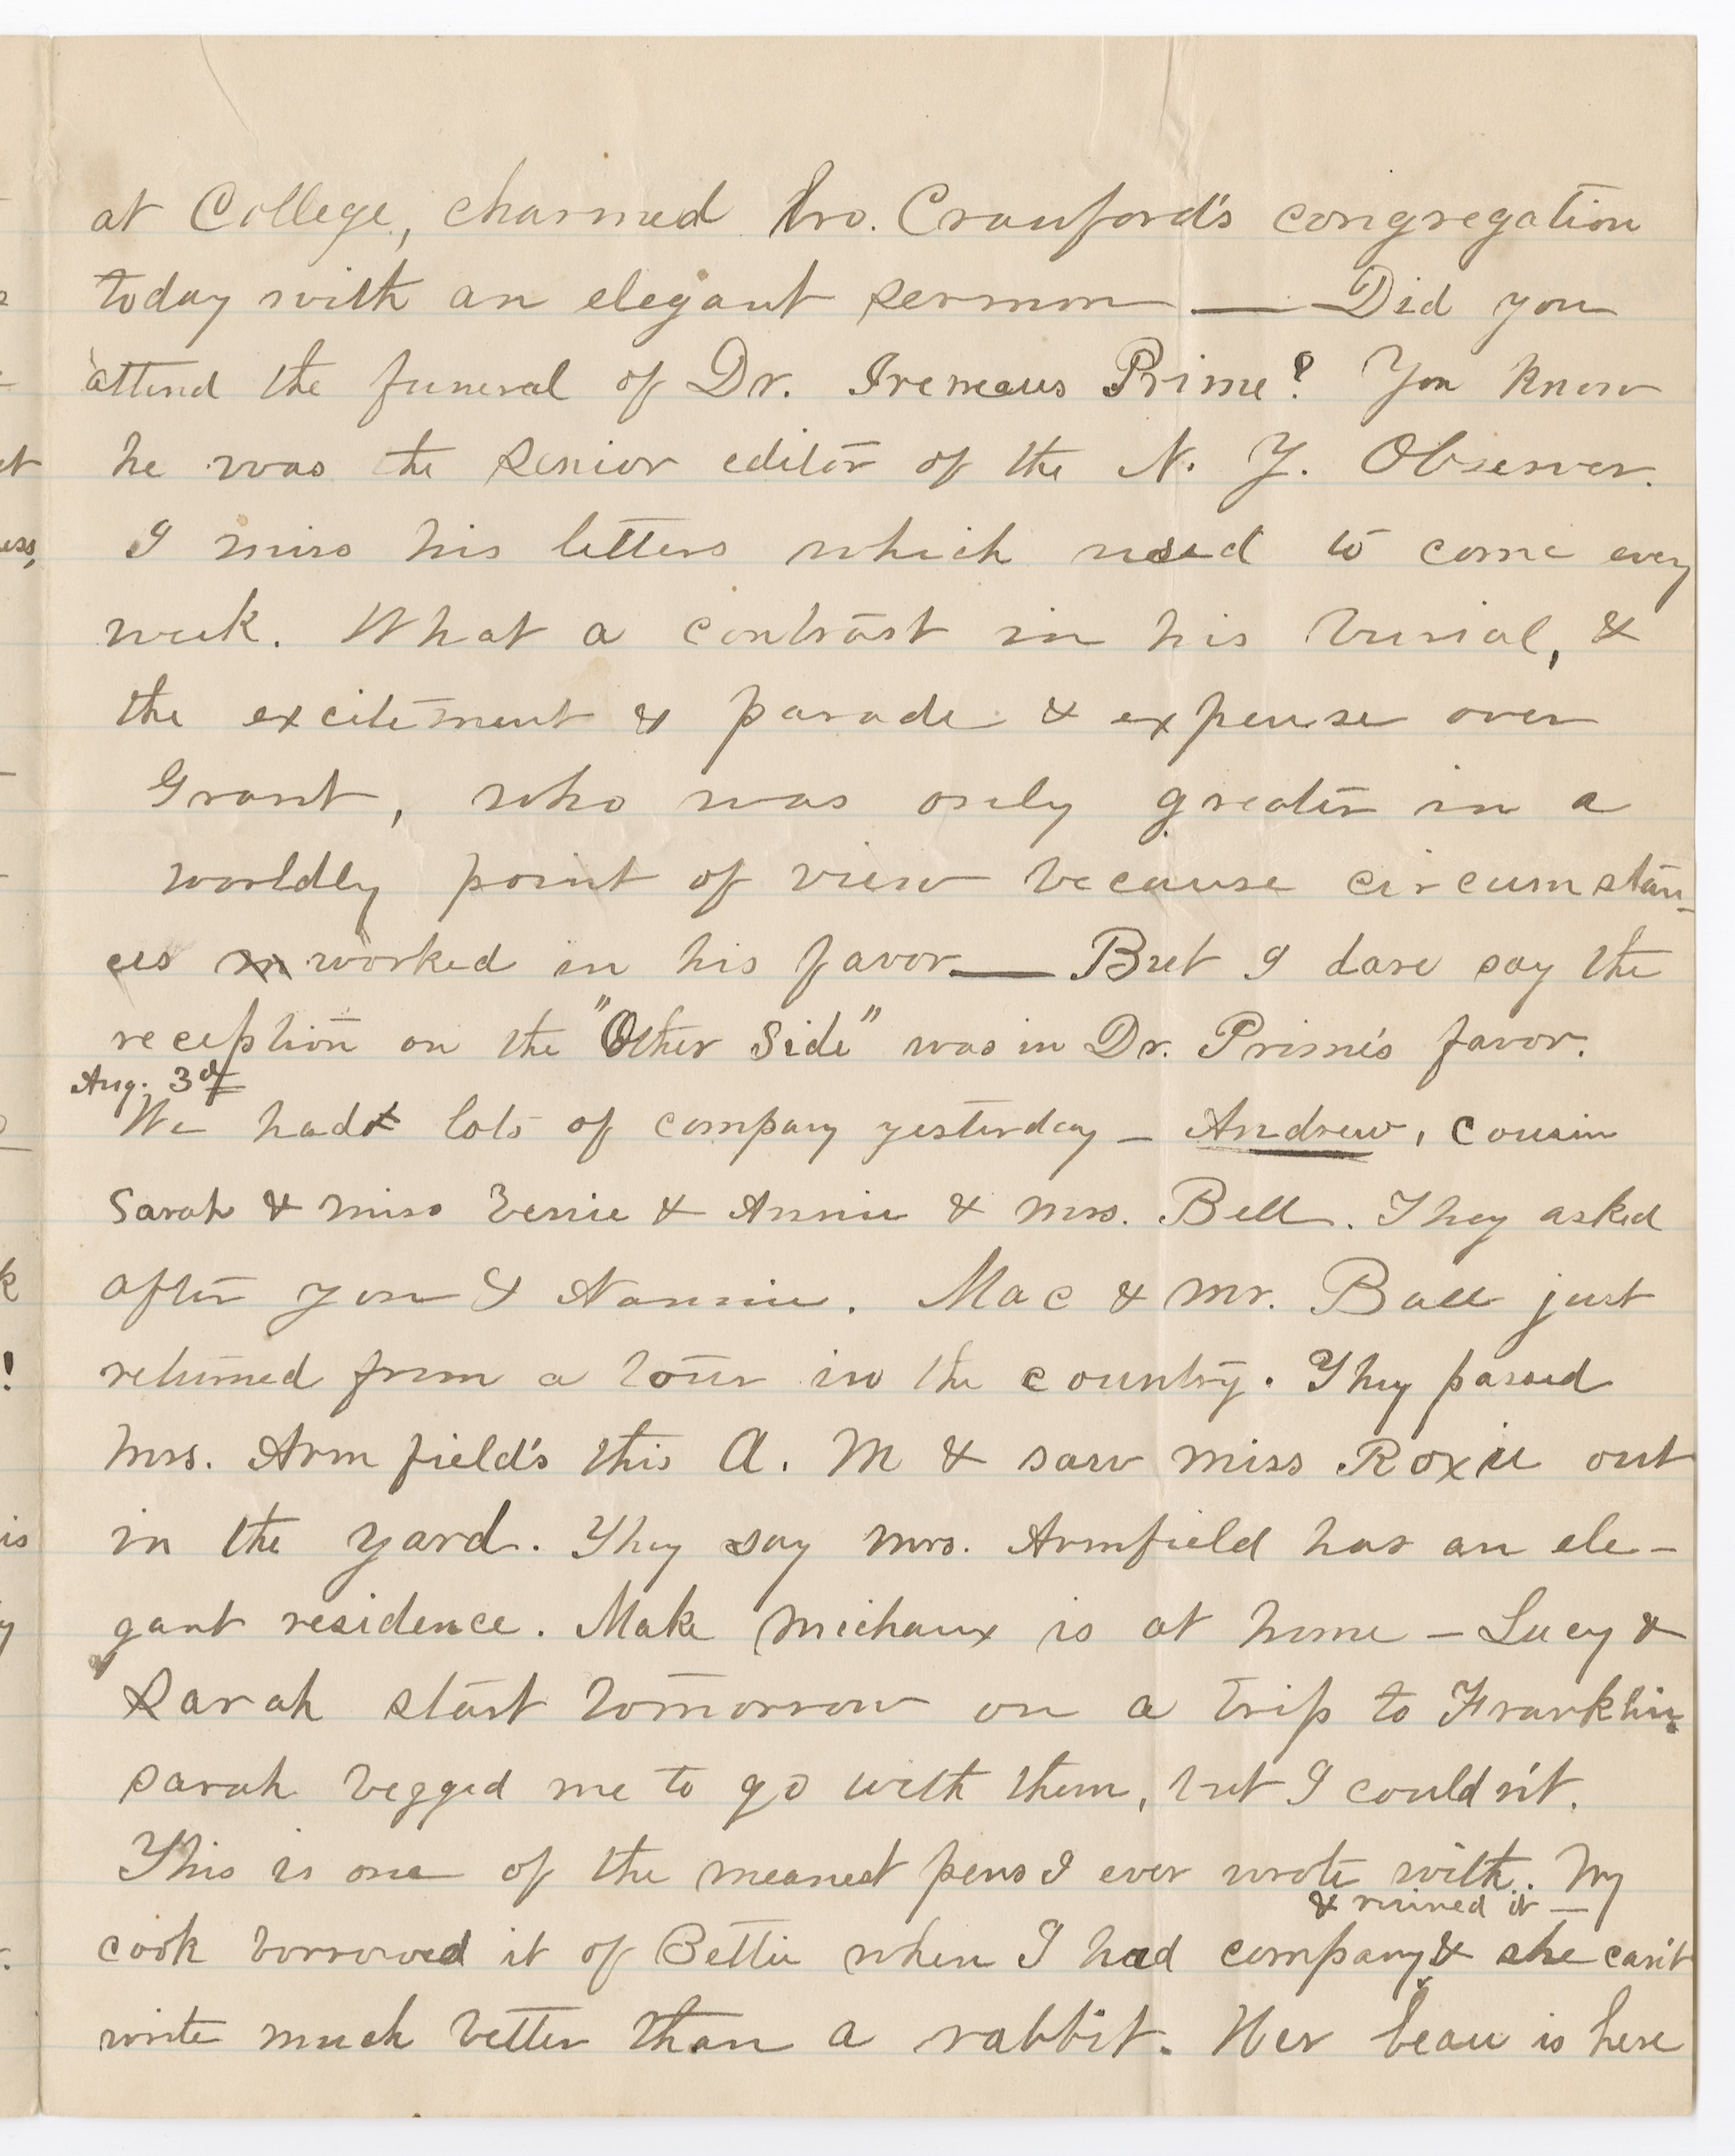 at College, charmed bro. Crawford's congregation
today with an elegant sermon — Did you
attend the funeral of Dr. Iremeaus Prime? You know
he was the senior editor of the N. Y. Observer.
I miss his letters which used to come every
week. What a contrast in his burial, &
the excitement & parade & expense over
Grant, who was only greater in a
worldly point of view because circumstan-
ces worked in his favor — But I dare say the
reception on the "Other Side" was in Dr. Prime's favor.
Aug. 3d
We had lots of company yesterday – Andrew, cousin
Sarah & miss & Annie & Mrs. Bell. They asked
after you & Nannie. Mac & Mr. Ball just
returned from a tour in the country. They passed
Mrs. Armfield's this A. M & saw miss Roxie out
in the yard. They say Mrs. Armfield has an ele-
gant residence. Make Michaux is at home – Lucy &
Sarah start tomorrow on a trip to Franklin.
Sarah begged me to go with them, but I couldn't.
This is one of the meanest pens I ever wrote with. My
& ruined it —
cook borrowed it of Bettie when I had company & she can't
write much better than a rabbit. Her beau is here
ct
ess,
k
!
is
y